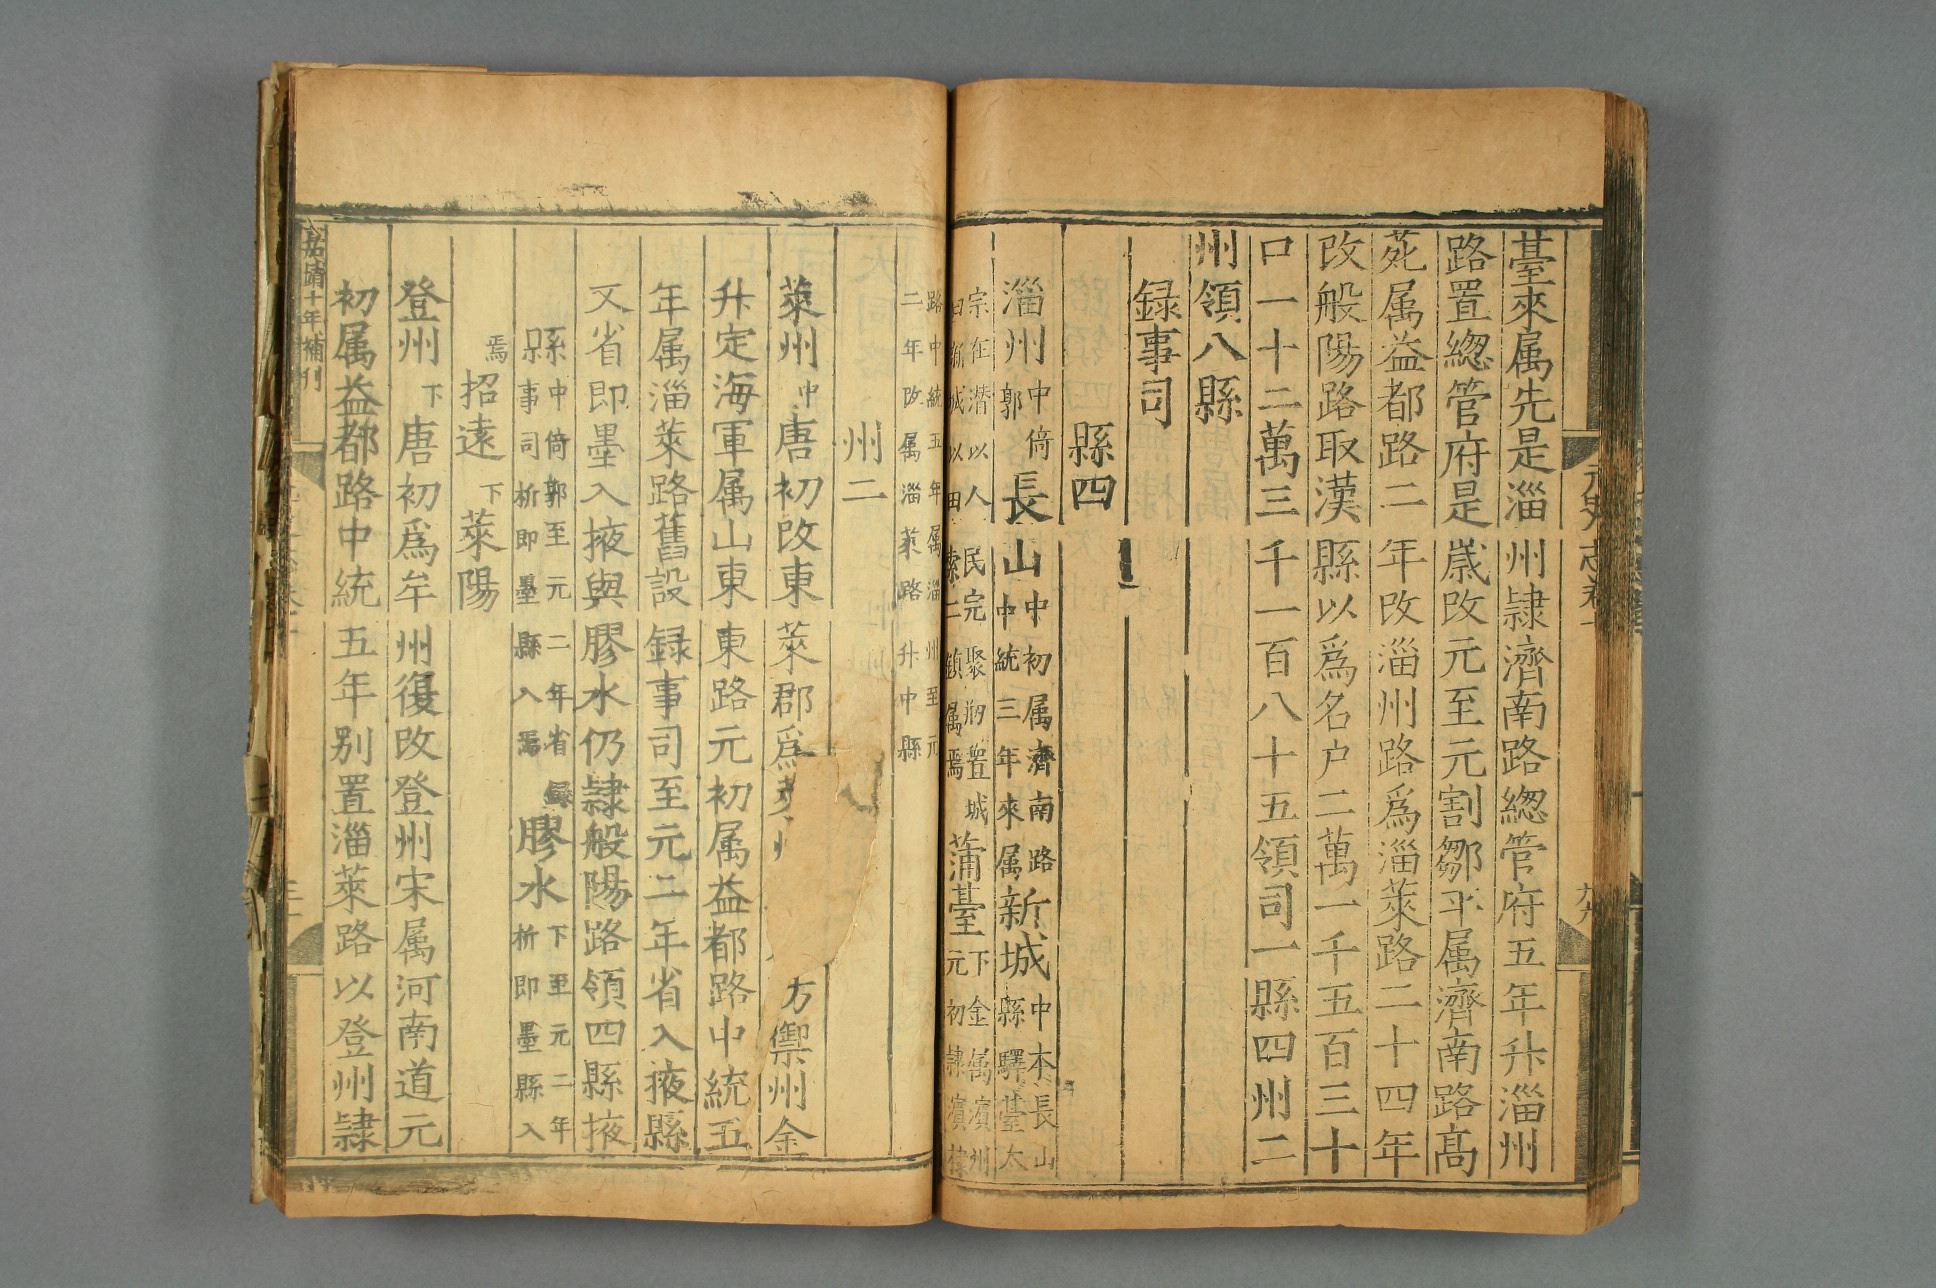 臺來属先是淄州隷濟南路緫管府五年升淄州
路置緫管府是歳改元至元割鄒平属濟南路髙
苑属益都路二年改淄州路爲淄萊路二十四年
改般陽路取漢縣以爲名户二萬一千五百三十
口一十二萬三千一百八十五領司一縣四州二
州領八縣
録事司
縣四
淄川中倚郭長山中初属濟南路中統三年來属新城中本長山縣驛臺太
宗在潜以人民完聚刱置城曰新城以田索二鎮属焉蒲臺下金属濱州元初隷濱棣
路中統五年属淄州至元二年改属淄萊路升中縣
州二
萊州中唐初改東萊郡爲萊州方禦州金
升定海軍属山東東路元初属益都路中統五
年属淄萊路舊設録事司至元二年省入掖縣
又省即墨入掖與膠水仍隷般陽路領四縣掖
縣中倚郭至元二年省録事司析即墨縣入焉膠水下至元二年析即墨縣入
焉招遠下萊陽
登州下唐初爲牟州復改登州宋属河南道元
初属益都路中統五年别置淄萊路以登州隷
嘉靖十年補刊
元史志卷十